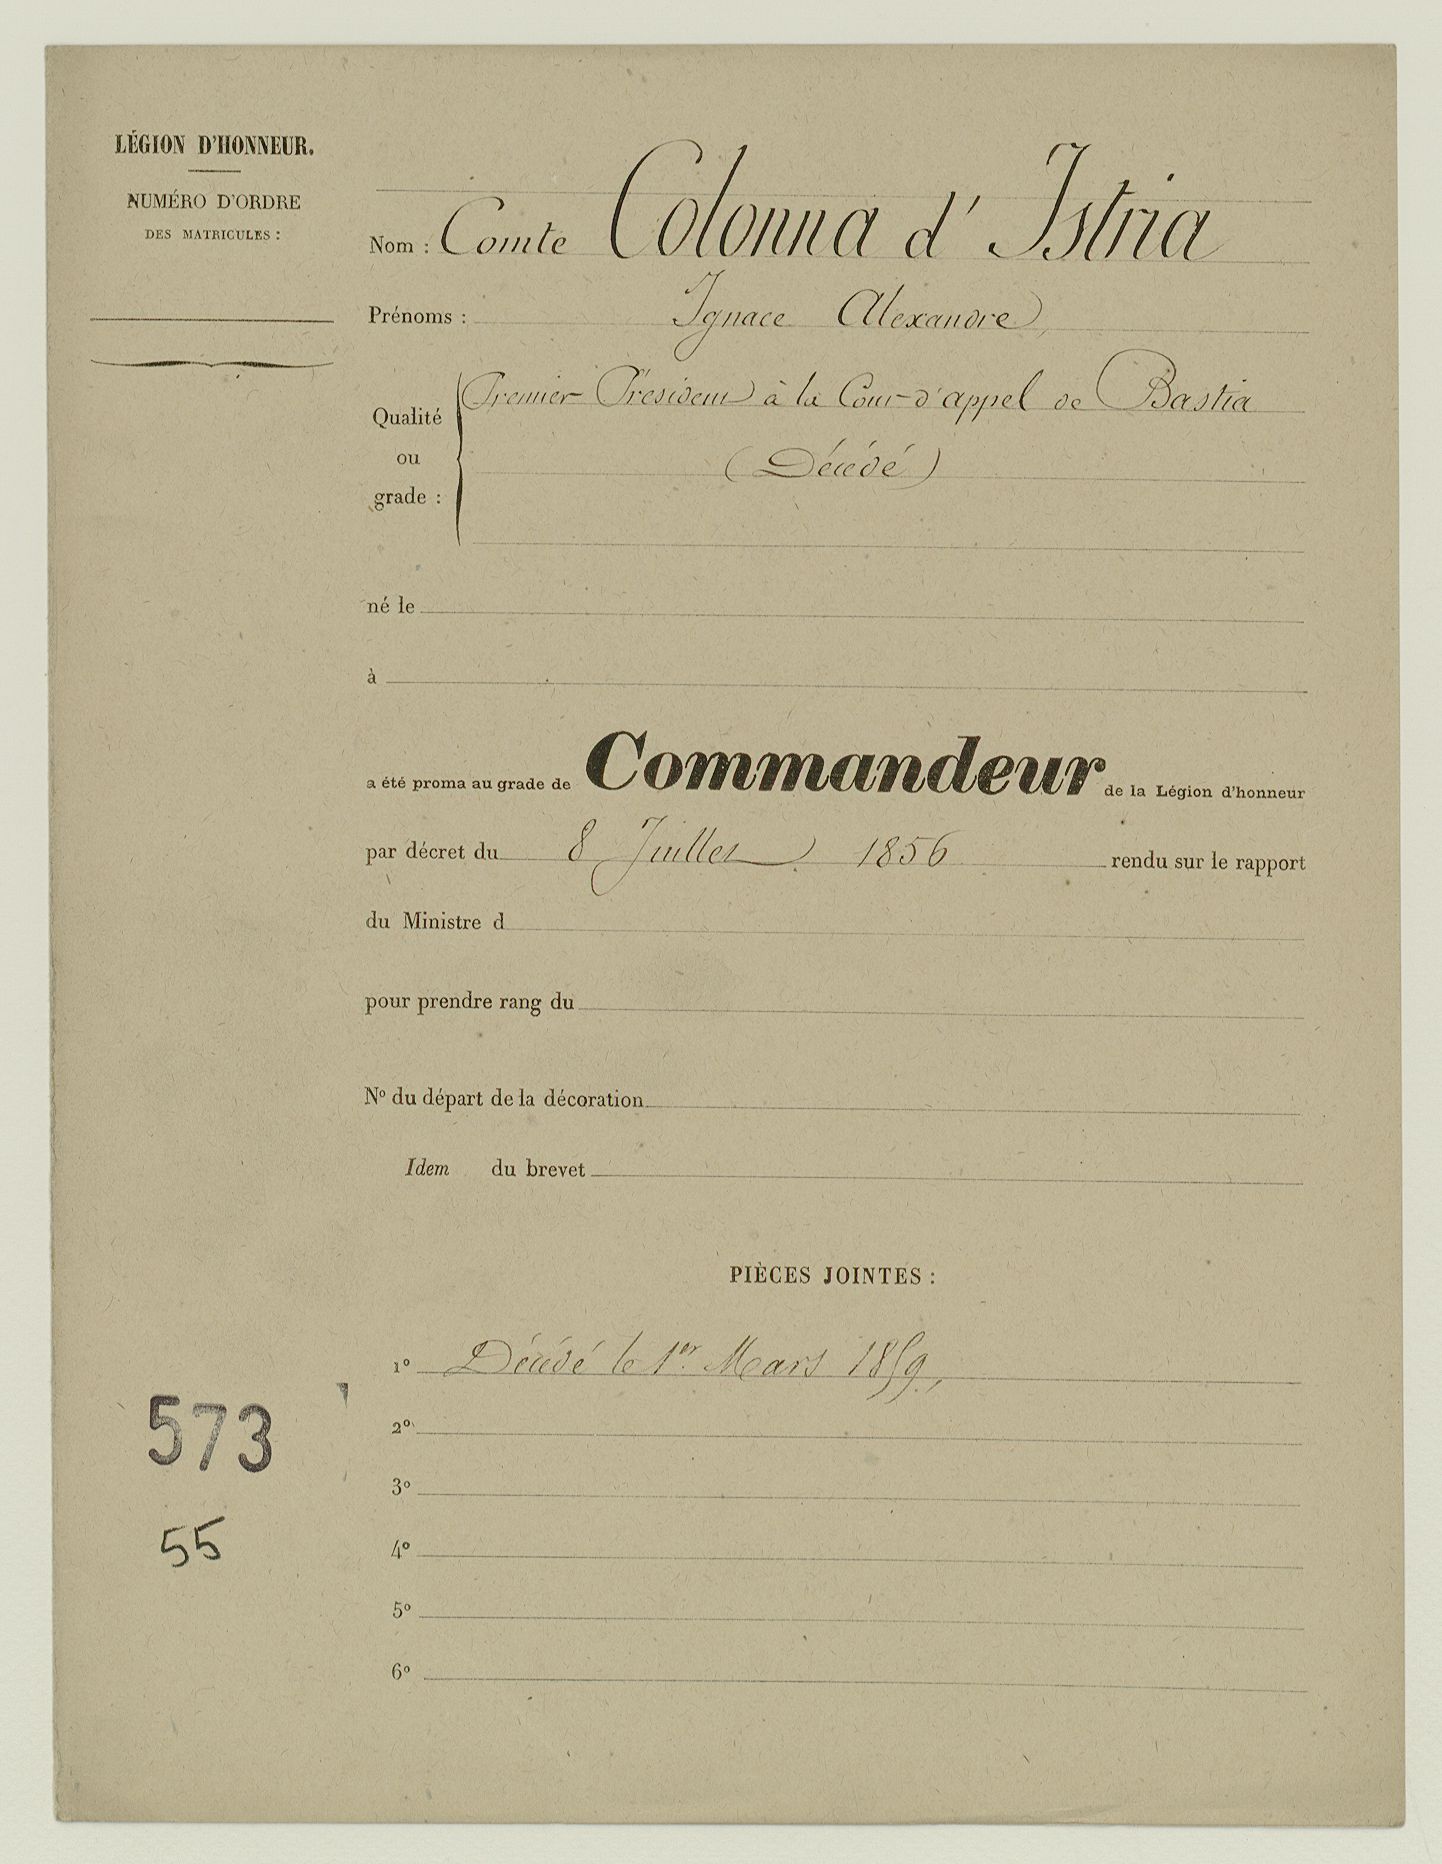 LÉGION D'HONNEUR.
NUMÉRO D'ORDRE
DES MATRICULES :
Nom : Comte Colonna d' Istria
Prénoms : Ignace Alexandre
Qualité ou grade : Premier Président à la Cour d'appel de Bastia
(Décédé)
né le
à
a été proma au grade de Commandeur de la Légion d'honneur
par décret du 8 Juillet 1856 rendu sur le rapport
du Ministre d
pour prendre rang du
Nº du départ de la décoration
Idem du brevet
PIÈCES JOINTES :
1º Décédé le 1er Mars 1859,
2º
3º
4º
5º
6º
573
55